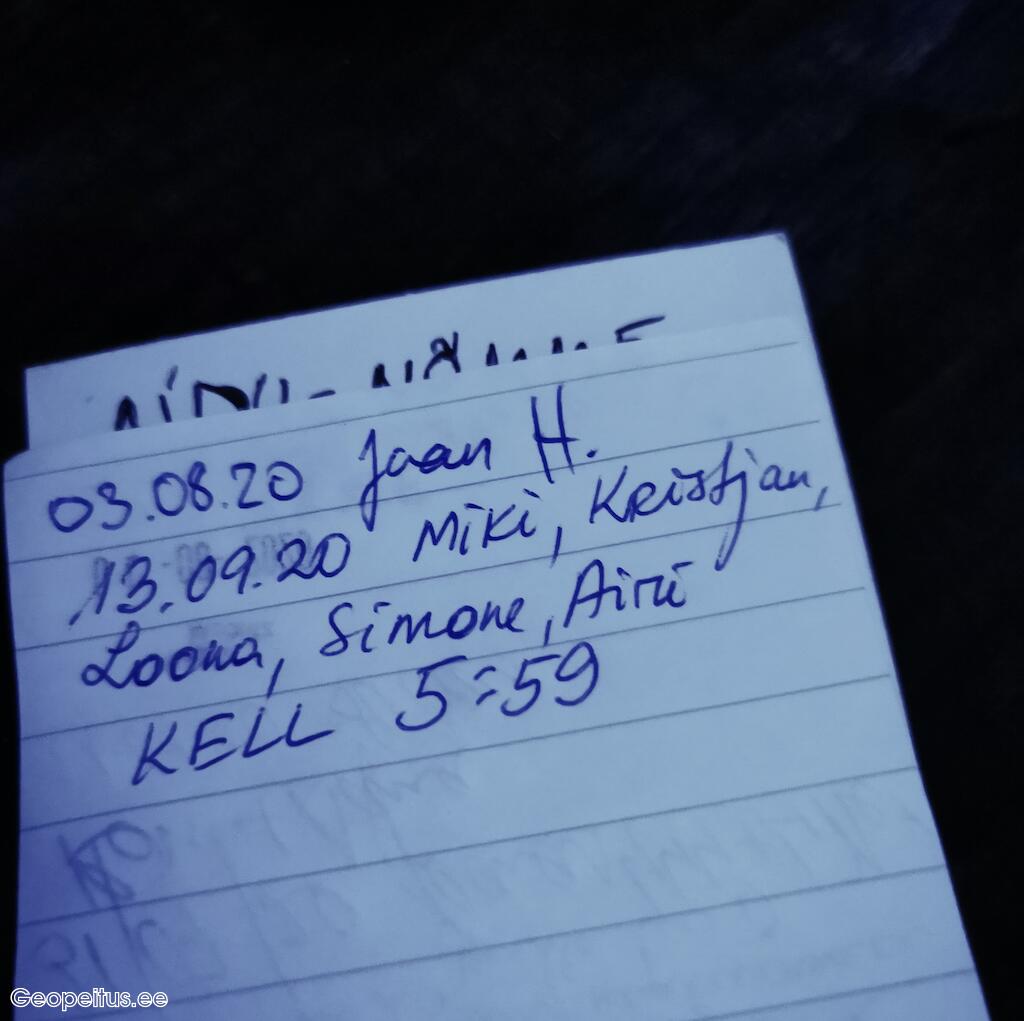 03.08.20 Jaan H.
13.09.20 Miki, Kristjan,
Loona, Simone, Airi
KELL 5:59
Geopeitus.ee